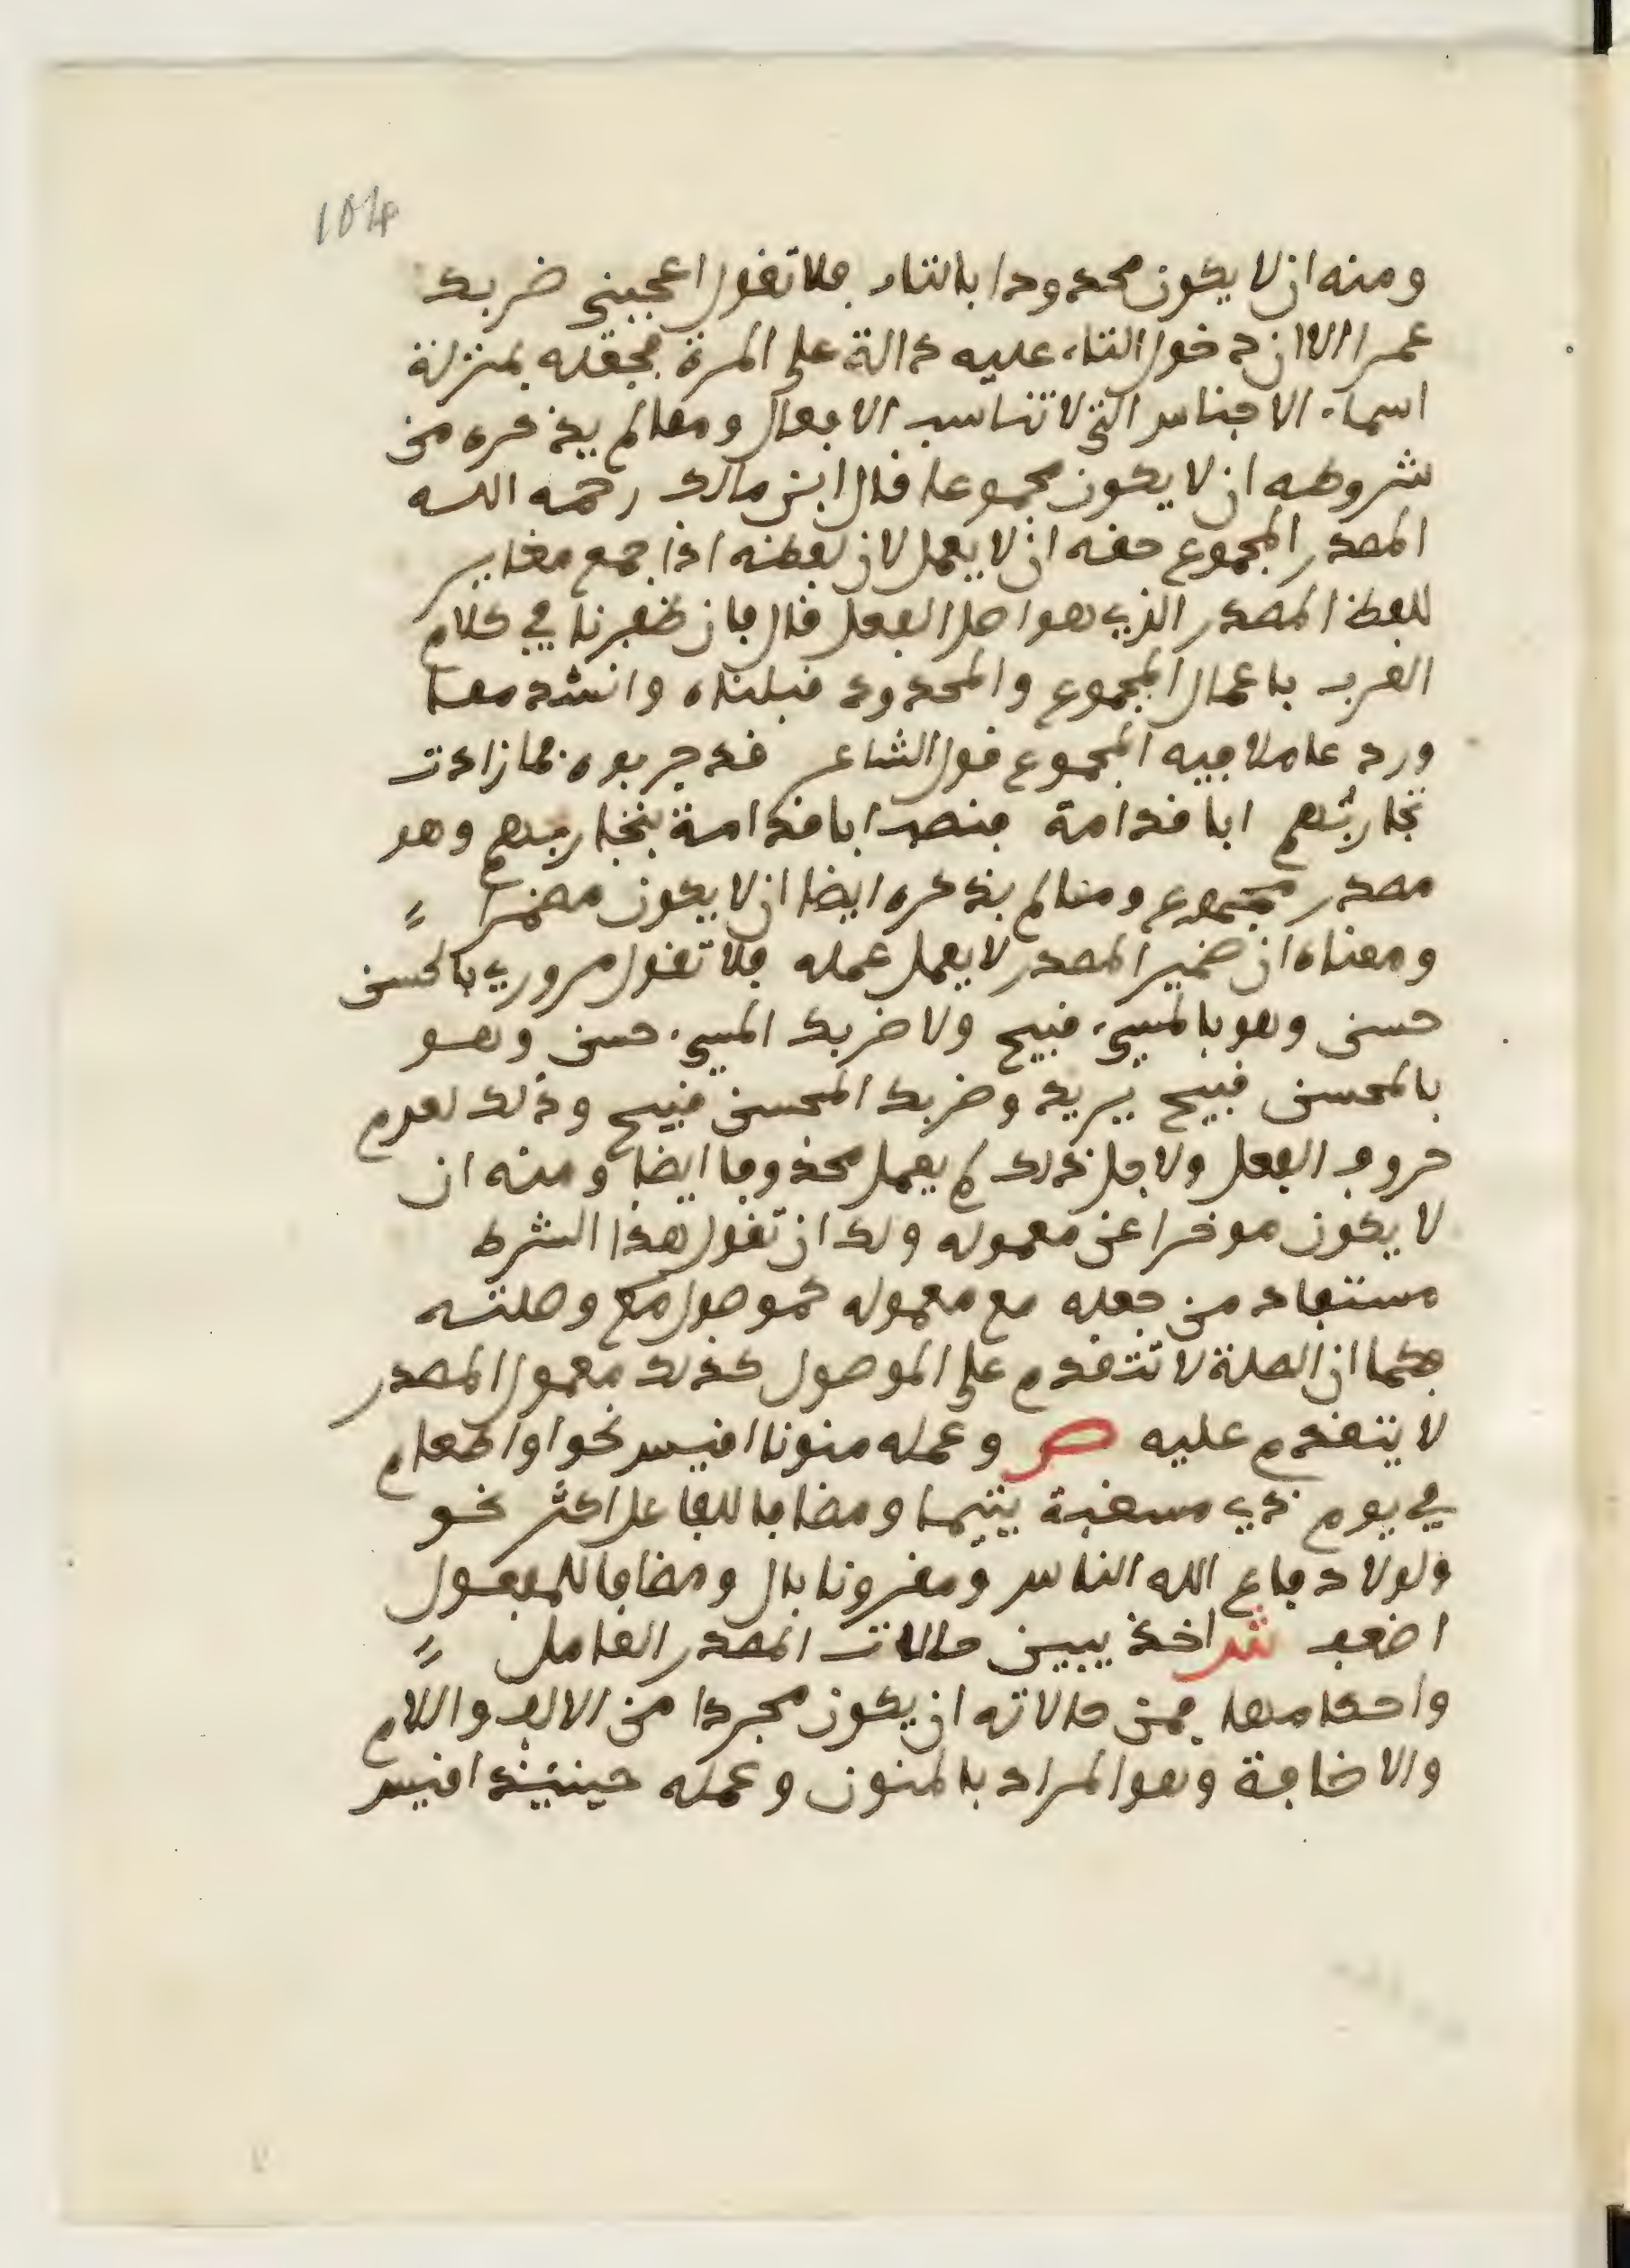 104
ومنه ان لا يكون محدودا بالتاء فلا تقول اعجبني ضربك
عمرا الا ان دخول التاء عليه دالة على المرة فجعله بمنزلة
اسماء الاجناس التي لا تناسب الافعال ومما لم يذكره من
شروطه ان لا يكون مجموعا قال ابن مالك رحمه الله
المصدر المجموع حقه ان لا يعمل لان لفظه اذا جمع مغاير
للفظ المصدر الذي هو اصل الفعل قال فان ظفرنا في كلام
العرب باعمال المجموع والمحدود قبلناه وانشد مما
ورد عاملا فيه المجموع قول الشاعر قد جربوه فما زادت
تجاربُهم ابا قدامة فنصب ابا قدامة بتجاربهم وهو
مصدر مجموع ومما لم يذكره ايضا ان لا يكون مضمرا
ومعناه ان ضمير المصدر لا يعمل عمله فلا تقول مروري بالحسن
حسن وهو بالمسيء قبيح ولا ضربك المسيء حسن وهو
بالمحسن قبيح يريد وضربك المحسن قبيح وذلك لعدم
حروف الفعل ولاجل ذلك لم يعمل محذوفا ايضا ومنه ان
لا يكون موخرا عن معموله ولك ان تقول هذا الشرط
مستفاد من جعله مع معموله كموصول مع وصلته
فكما ان الصلة لا تتقدم على الموصول كذلك معمول المصدر
لا يتقدم عليه ص وعمله منونا اقيس نحو او اطعام
في يوم ذي مسغبة يتيما ومضافا للفاعل اكثر نحو
ولولا دفاع الله الناس ومقرونا بال ومضافا للمفعول
اضعف ش اخذ يبين حالات المصدر العامل
واحكامها فمن حالاته ان يكون مجردا من الالف واللام
والاضافة وهو المراد بالمنون وعمله حينئذ اقيس